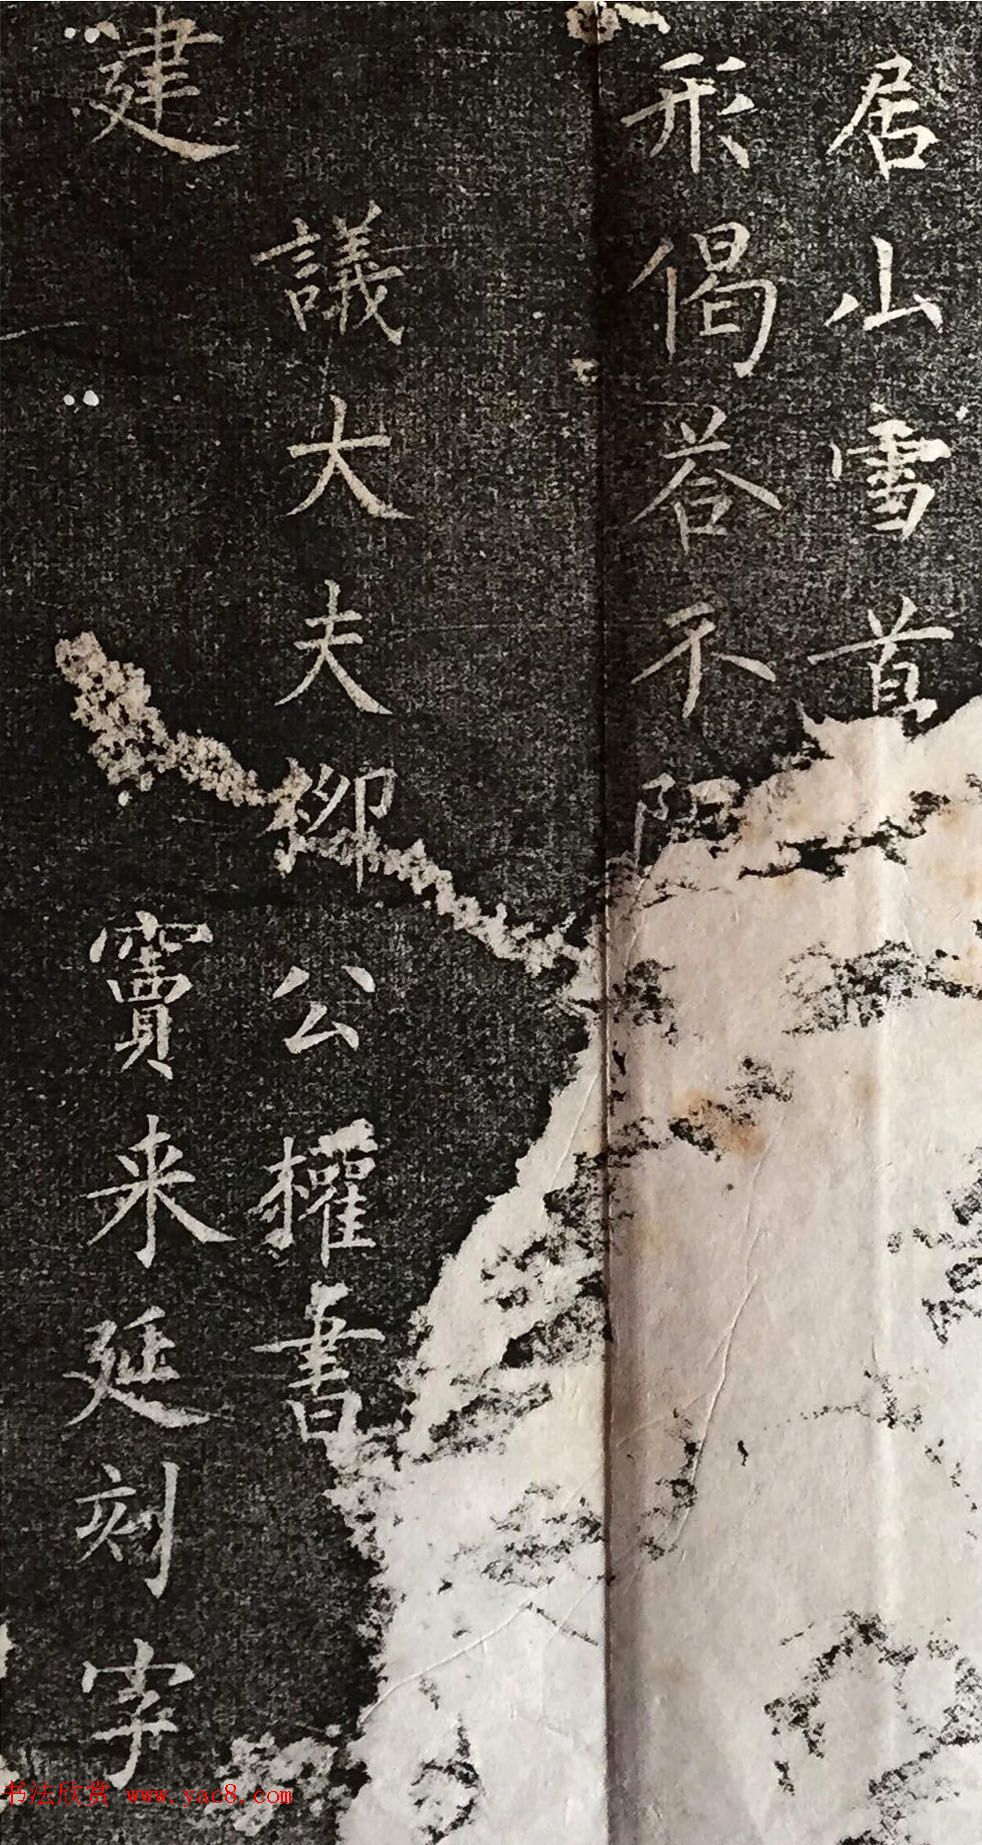 居山雪首
形偈荅不阻
議大夫柳公權書
建
竇来延刻字
书法欣赏 www.yac8.com